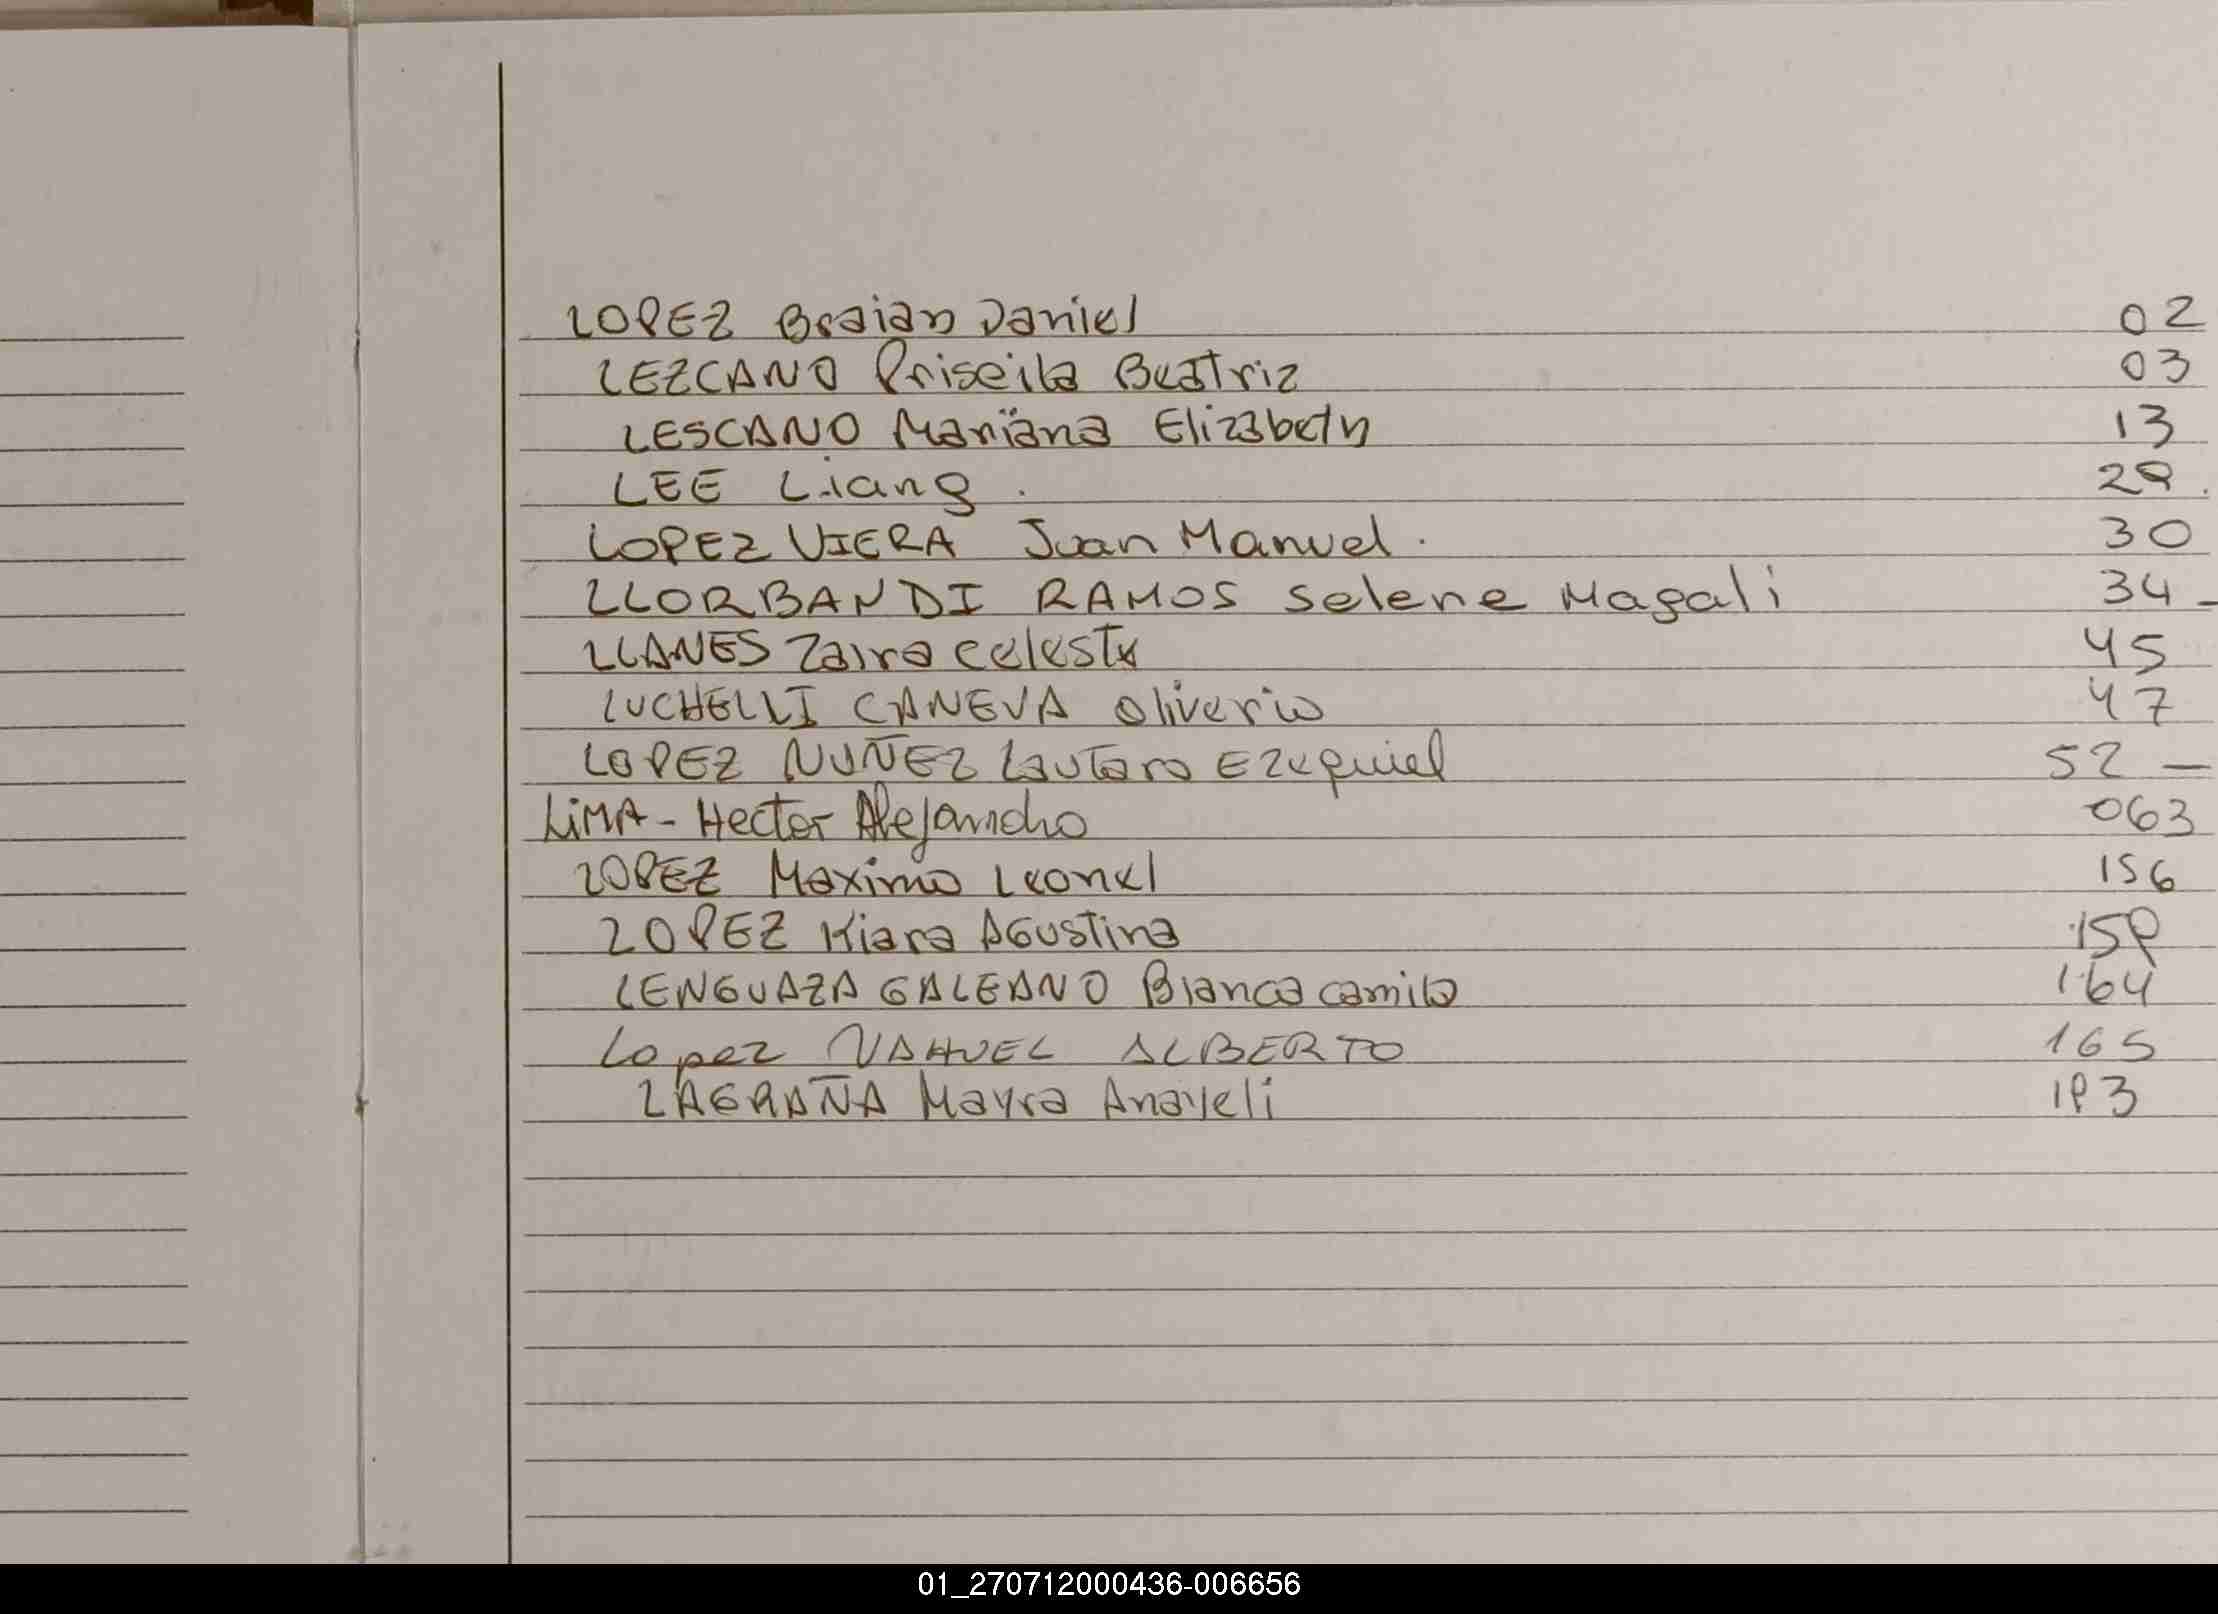 LOPEZ Braian Daniel 02
LEZCANO Priscila Beatriz 03
LESCANO Mariana Elizabeth 13
LEE Liang . 29.
LOPEZ VIERA Juan Manuel. 30
LLORBANDI RAMOS Selene Magali 34-
LLANES Zaira Celeste 45
LUCHELLI CANEVA Oliverio 47
LOPEZ NUÑEZ Lautaro Ezequiel 52 —
LiMA - Hector Alejandro 063
LOPEZ Maximo Leonel 156
LOPEZ Kiara Agustina 158
LENGUAZA GALEANO Bianca camila 164
Lopez NAHUEL ALBERTO 165
LAGRAÑA Mayra Anayeli 183
01_270712000436-006656